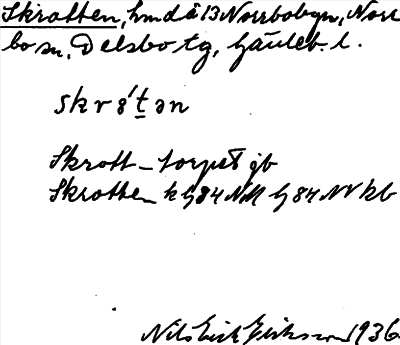 Skrotten, hmd å 13 Norrbobyn, Norr
bo sn, Delsbo tg, Gävleb. l.
skrə́t̲ən
Skrott-torpet gb
Skrotten k G84 NM G 84 NV kb
Nils Erik Eriksson 1936